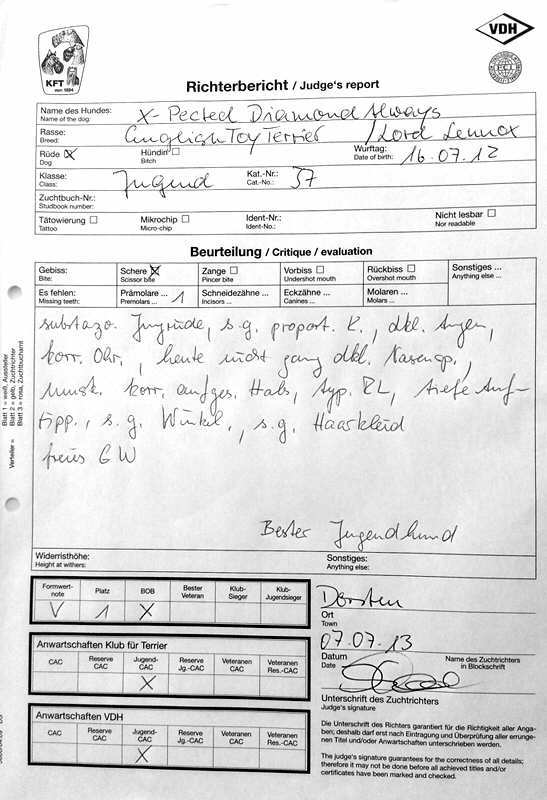 KFT
von 1894
VDH
FCI
Richterbericht / Judge's report
Name des Hundes: X-Pected Diamond Always
Name of the dog:
Rasse: English Toy Terrier / Lord Lennox
Breed:
Rüde ☒ Hündin ☐ Wurftag: 16.07.12
Dog Bitch Date of birth:
Klasse: Jugend Kat.-Nr.: 37
Class: Cat.-No.:
Zuchtbuch-Nr.:
Studbook number:
Tätowierung ☐ Mikrochip ☐ Ident-Nr.: Nicht lesbar ☐
Tattoo Micro-chip Ident-No.: Nor readable
Beurteilung / Critique / evaluation
Gebiss: Schere ☒ Zange ☐ Vorbiss ☐ Rückbiss ☐ Sonstiges ...
Bite: Scissor bite Pincer bite Undershot mouth Overshot mouth Anything else ...
Es fehlen: Prämolare ... 1 Schneidezähne ... Eckzähne ... Molaren ...
Missing teeth: Premolars ... Incisors ... Canines ... Molars ...
Jugrüde, s.g. proport. K., dkl. Augen,
korr. Ohr, heute nicht ganz dkl. Nasensp.,
musk. korr. aufges. Hals, typ. RL, tiefe Auf-
tipp., s.g. Winkel., s.g. Haarkleid
freies GW
Bester Jugendhund
Blatt 1 = weiß, Aussteller
Blatt 2 = gelb, Zuchtrichter
Blatt 3 = rosa, Zuchtbuchamt
Verteiler =
Widerristhöhe: Sonstiges:
Height at withers: Anything else:
Formwert-note Platz BOB Bester Veteran Klub-Sieger Klub-Jugendsieger
V 1 X
Dorsten
Ort
Town
Anwartschaften Klub für Terrier
CAC Reserve CAC Jugend-CAC Reserve Jg.-CAC Veteranen CAC Veteranen Res.-CAC
X
07.07.13
Datum Name des Zuchtrichters
Date in Blockschrift
Unterschrift des Zuchtrichters
Judge's signature
Anwartschaften VDH
CAC Reserve CAC Jugend-CAC Reserve Jg.-CAC Veteranen CAC Veteranen Res.-CAC
X
Die Unterschrift des Richters garantiert für die Richtigkeit aller Anga-
ben; deshalb darf erst nach Eintragung und Überprüfung aller errunge-
nen Titel und/oder Anwartschaften unterschrieben werden.
The judge's signature guarantees for the correctness of all details;
therefore it may not be done before all achieved titles and/or
certificates have been marked and checked.